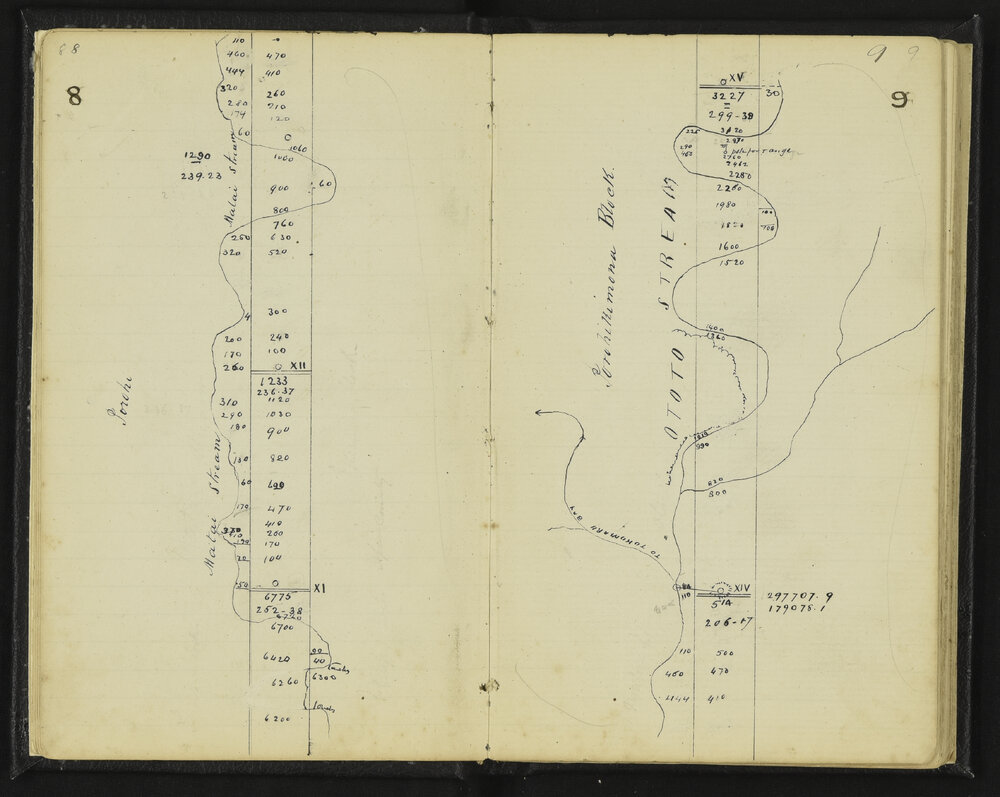 88
8
110 0
460 470
444 410
320 260
280 210
174 120
60 0
1060
1290 1000
239.23
60
900
800
760
260 630
320 520
Matai Stream
4 300
200 240
170 100
260 0 XII
1233
236.37
1120
310
290 1030
180 900
Porohi
130 820
60 600
Matai Stream
170 470
410
370 200
170
20 104
50 0 XI
6775
252-38
6720
6700
6420 40
Land
6260 6300
Land
6200
9 9
9
0 XV
3227 30
299-38
226 3120
2890
290
460
pole for range
2760
2462
2280
2260
1980 100
1820 100
1600
1520
Porohitimona Block.
OTOTO STREAM
1400
1360
890
820
800
TO TOKOMARU BAY
XIV
110 514
206-47
297707.9
179078.1
110 500
460 470
444 410